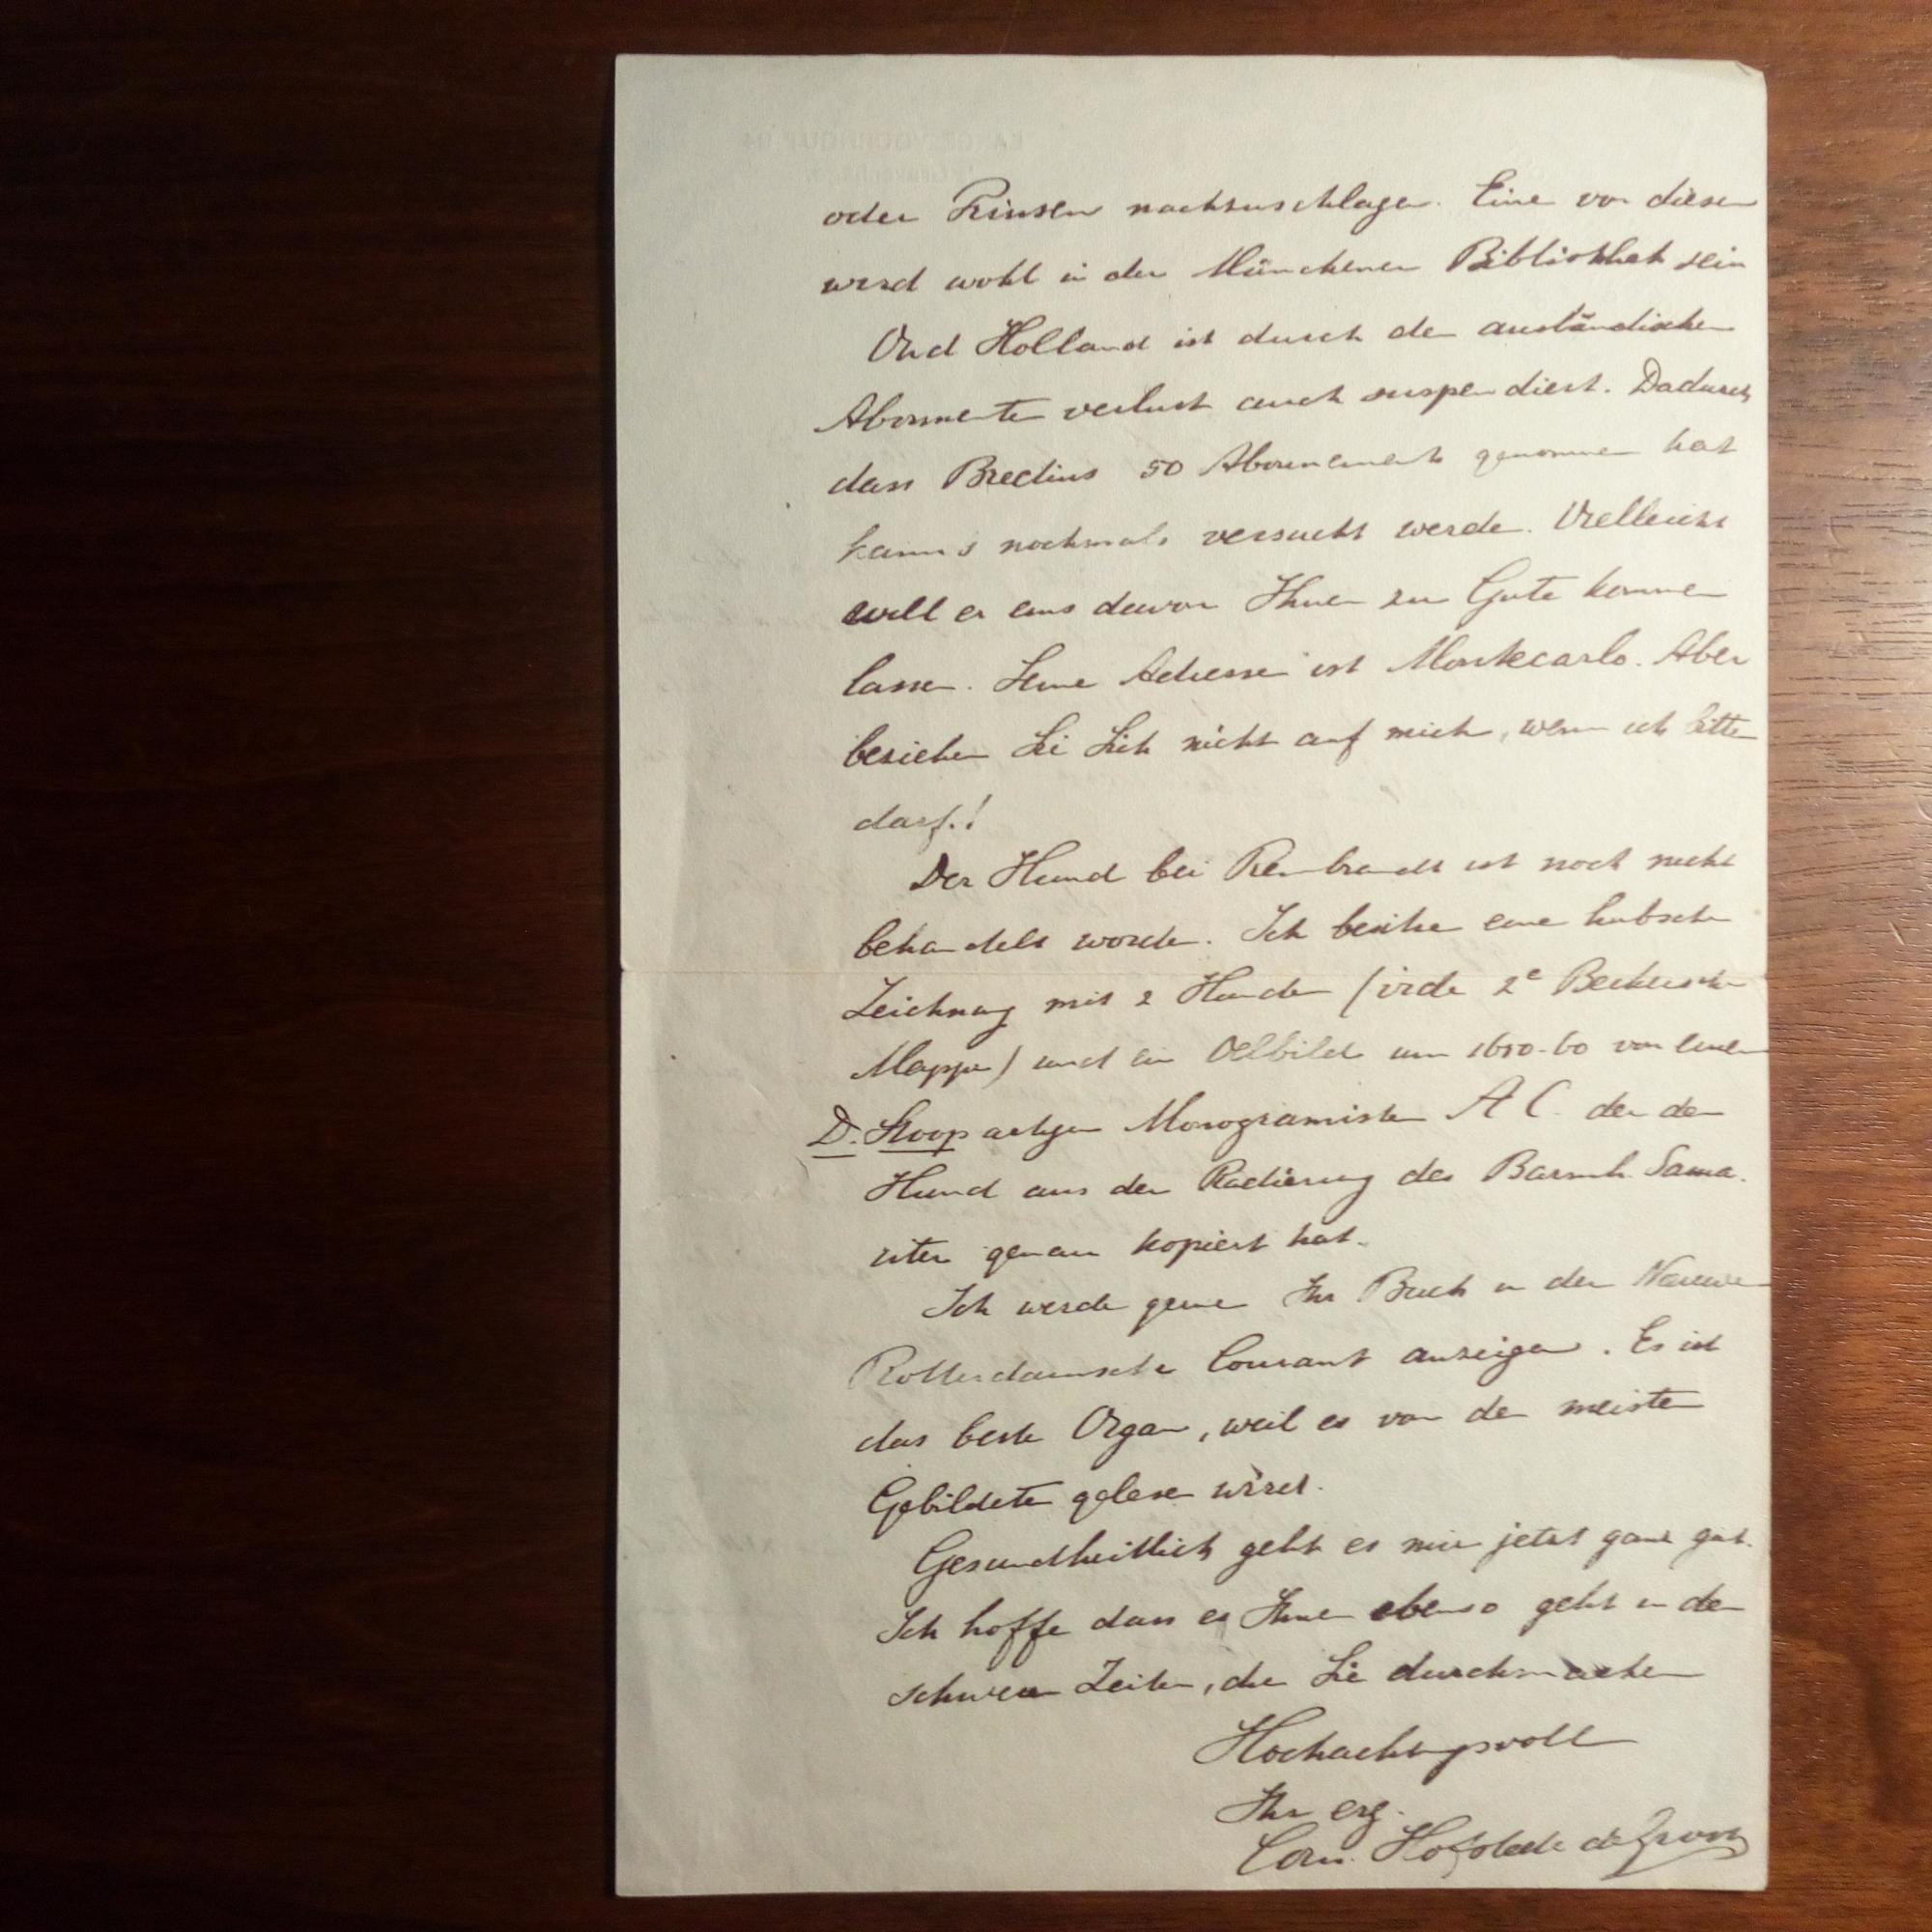 oder Prinsen nachzuschlagen. Eine von diesen
wird wohl in der Münchener Bibliothek sein
Oud Holland ist durch den ausländischen
Abonnenten verlust auch suspendiert. Dadurch
dass Bredius 50 Abonnements genommen hat
kann's nochmals versucht werden. Vielleicht
will er eins davon Ihnen zu Gute kommen
lassen. Seine Adresse ist Montecarlo. Aber
beziehen Sie Sich nicht auf mich, wenn ich bitten
darf.!
Der Hund bei Rembrandt ist noch nicht
behandelt worden. Ich besitze eine hübsche
Zeichnung mit 2 Hunden (vide 2e
Mappe) und ein Oelbild um 1650-60 von einem
D. Stoop artigen Monogramisten A C. der den
Hund aus der Radierung des Barmh. Sama-
riter genau kopiert hat.
Ich werde gerne Ihr Buch in der Nieuwe
Rotterdamsche Courant anzeigen. Es ist
das beste Organ, weil es von den meisten
Gebildeten gelesen wird.
Gesundheitlich geht es mir jetzt ganz gut.
Ich hoffe dass es Ihnen ebenso geht in den
schweren Zeiten, die Sie durchmachen
Hochachtungsvoll
Ihr erg.
Corn. Hofstede de Groot